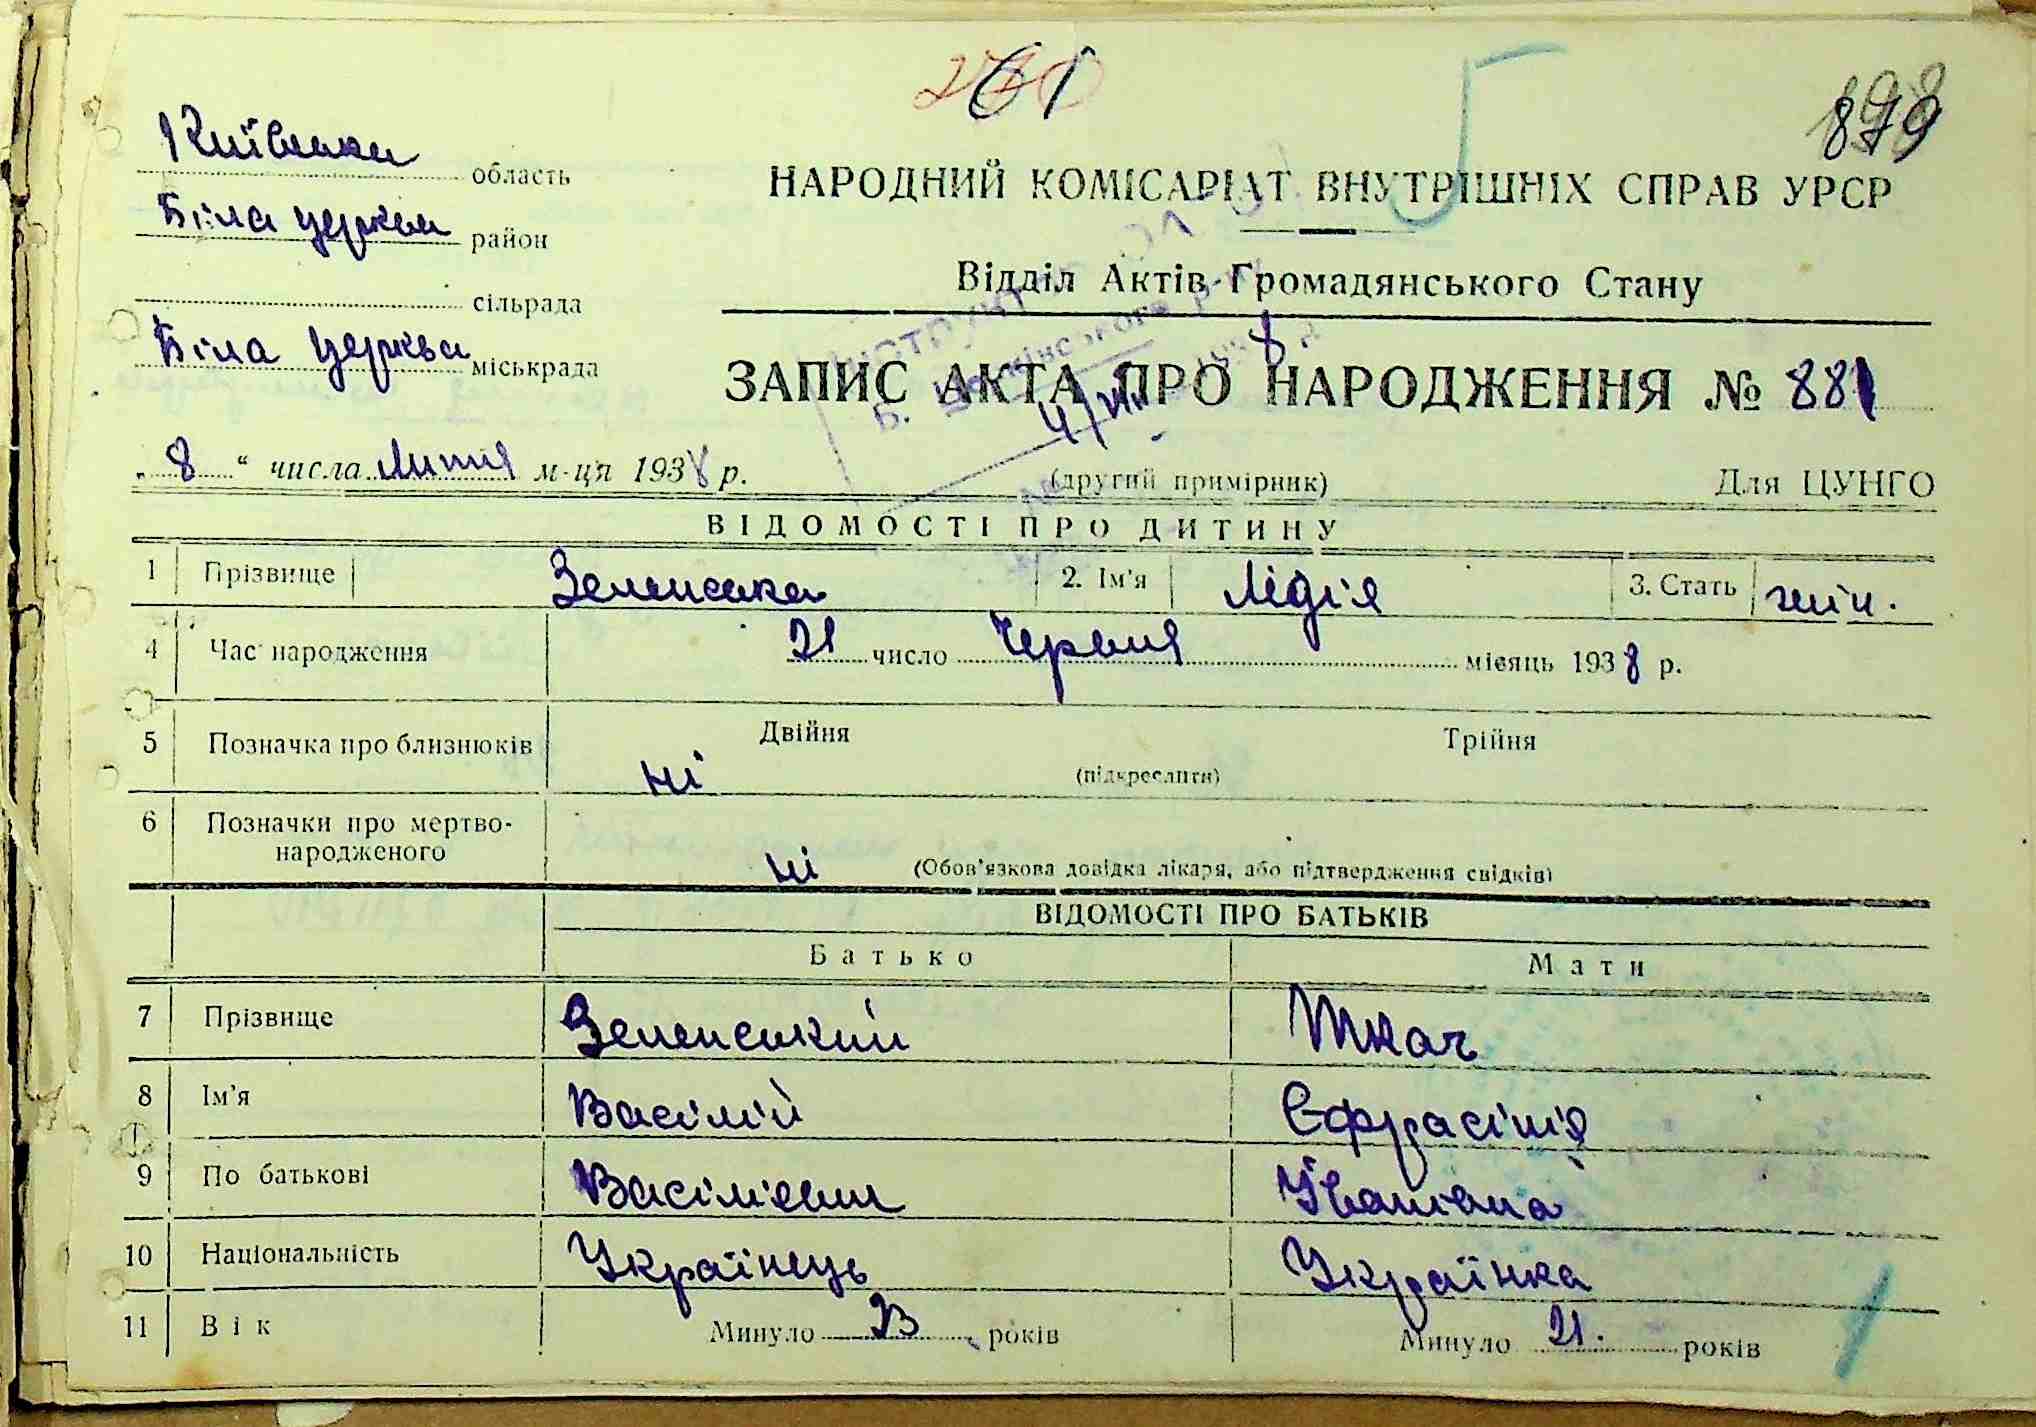 61
5
879
Київська область
Біла церква район
сільрада
Біла церква міськрада
НАРОДНИЙ КОМІСАРІАТ ВНУТРІШНІХ СПРАВ УРСР
Відділ Актів Громадянського Стану
ЗАПИС АКТА ПРО НАРОДЖЕННЯ № 881
„ 8 “ числа Липня м-ця 1938 р.
(другий примірник)
Для ЦУНГО
ВІДОМОСТІ ПРО ДИТИНУ
1 Прізвище Зеленська 2. Ім'я Лідія 3. Стать жін.
4 Час народження 21 число Червня місяць 1938 р.
5 Позначка про близнюків Двійня Трійня
ні (підкреслити)
6 Позначки про мертво-
народженого ні (Обов'язкова довідка лікаря, або підтвердження свідків)
ВІДОМОСТІ ПРО БАТЬКІВ
Батько Мати
7 Прізвище Зеленський Ткач
8 Ім'я Васілій Єфрасінія
9 По батькові Васілієвич Іванівна
10 Національність Українець Українка
11 Вік Минуло 23 років Минуло 21. років